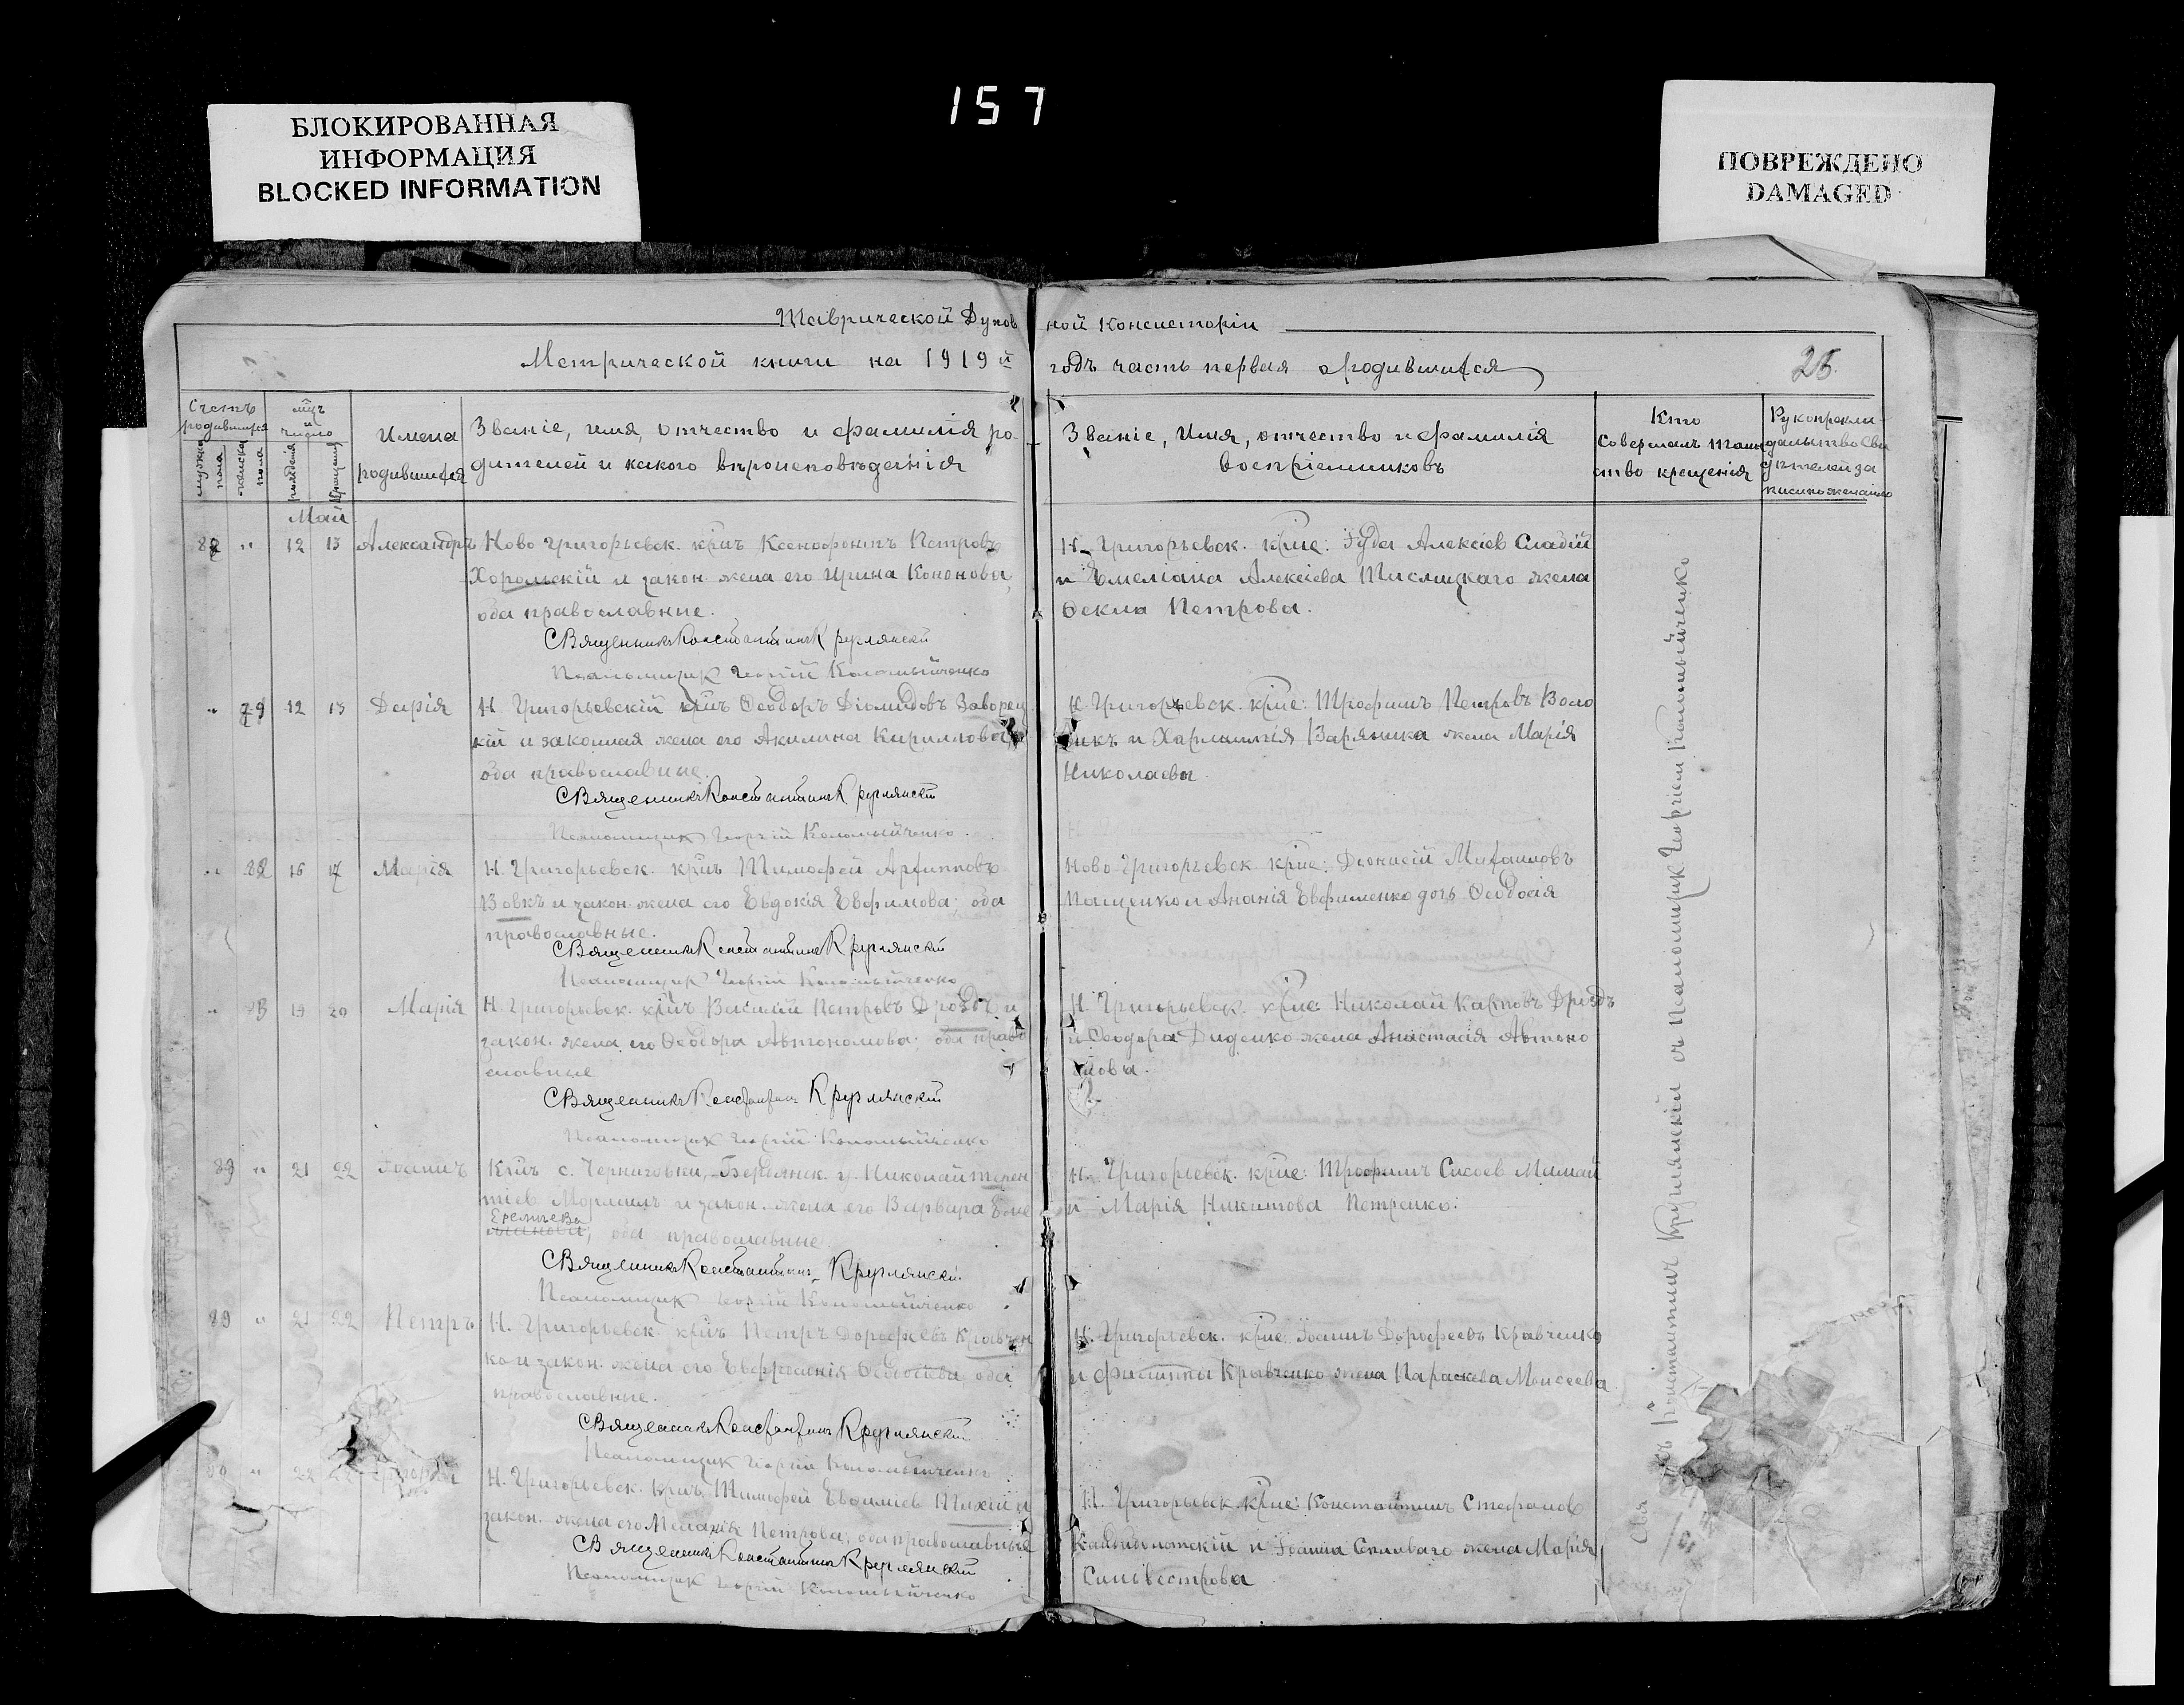 157
БЛОКИРОВАННАЯ
ИНФОРМАЦИЯ
BLOCKED INFORMATION
ПОВРЕЖДЕНО
DAMAGED
Таврической Духов ной Консисторіи
Метрической книги на 1919 й годъ часть первая о родившихся
25.
Счетъ родившихся
мужска пола
женска пола
мц̃ъ и число
рожденія
крещенія
Имена
родившихся
Званіе, имя, отчество и фамилія ро-
дителей и какого вѣроисповѣданія
Званіе, Имя, отчество и фамилія
воспріемниковъ
Кто
совершалъ таин
ство крещенія
Рукоприкла-
дельство сви
дѣтелей за
писи по желанію
Май
" 12 13 Александръ Ново Григорьевск. крнъ Ксенофонтъ Петровъ
Хорольскій и закон. жена его Ирина Кононова,
оба православные.
Священникъ Константинъ Круглянскій
Псаломщик Георгій Коломыйченко
Н. Григорьевск. крне: Іуда Алексіев Сладій
и Емеліана Алексіева Тислицкаго жена
Ѳекла Петрова.
" 79 12 13 Дарія Н. Григорьевскій крнъ Ѳеодоръ Діомидовъ Заворец
кій и законная жена его Акилина Кириллова,
оба православные.
Священникъ Константинъ Круглянскій
Псаломщик Георгій Коломыйченко.
Н. Григорьевск. крне: Трофимъ Петровъ Воло
и Харлампія Заряника жена Марія
Николаева.
" 82 16 17 Марія Н. Григорьевск. крнъ Тимофей Архиповъ
Вовкъ и закон. жена его Евдокія Евфимова; оба
православные.
Священникъ Константинъ Круглянскій
Псаломщик Георгій Коломыйченко
Ново-Григорьевск. крне: Діонисій Михаиловъ
Пащенко и Ананія Евфименко дочь Ѳеодосія
" 83 19 20 Марія Н. Григорьевск. крнъ Василій Петровъ Дроздъ и
закон. жена его Ѳеодора Автономова; оба право
славные
Священникъ Константинъ Круглянскій
Псаломщик Георгій Коломыйченко
Н. Григорьевск. крне: Николай Карповъ Дроздъ
и Ѳеодора Диденко жена Анастасія Автоно
мова.
89 " 21 22 Іоаннъ Крнъ с. Черниговки, Бердянск. у. Николай Терен
тіев и закон. жена его Варвара Еме
Еремѣева
оба православные.
Священникъ Константинъ Круглянскій
Псаломщик Георгій Коломыйченко
Н. Григорьевск. крне: Трофимъ Сисоев Мамай
и Марія Никитова Петренко.
89 " 21 22 Петръ Н. Григорьевск. крнъ Петръ Дорофеевъ Кравчен
ко и закон. жена его Евфросинія Ѳедосіева, оба
православные.
Священникъ Константинъ Круглянскій
Псаломщик Георгій Коломыйченко
Н. Григорьевск. крне: Іоаннъ Дорофеевъ Кравченко
и Филиппа Кравченко жена Параскева Моисеева
" 22 Н. Григорьевск. крнъ Тимофей Евфиміев Тихій и
закон. жена его Меланія Петрова; оба православные
Священникъ Константинъ Круглянскій
Псаломщик Георгій Коломыйченко
Н. Григорьевск. крне: Константинъ Стефанов
и Іоанна жена Марія
Сильвестрова
Константинъ Круглянскій съ псаломщик. Георгіем Коломыйченко